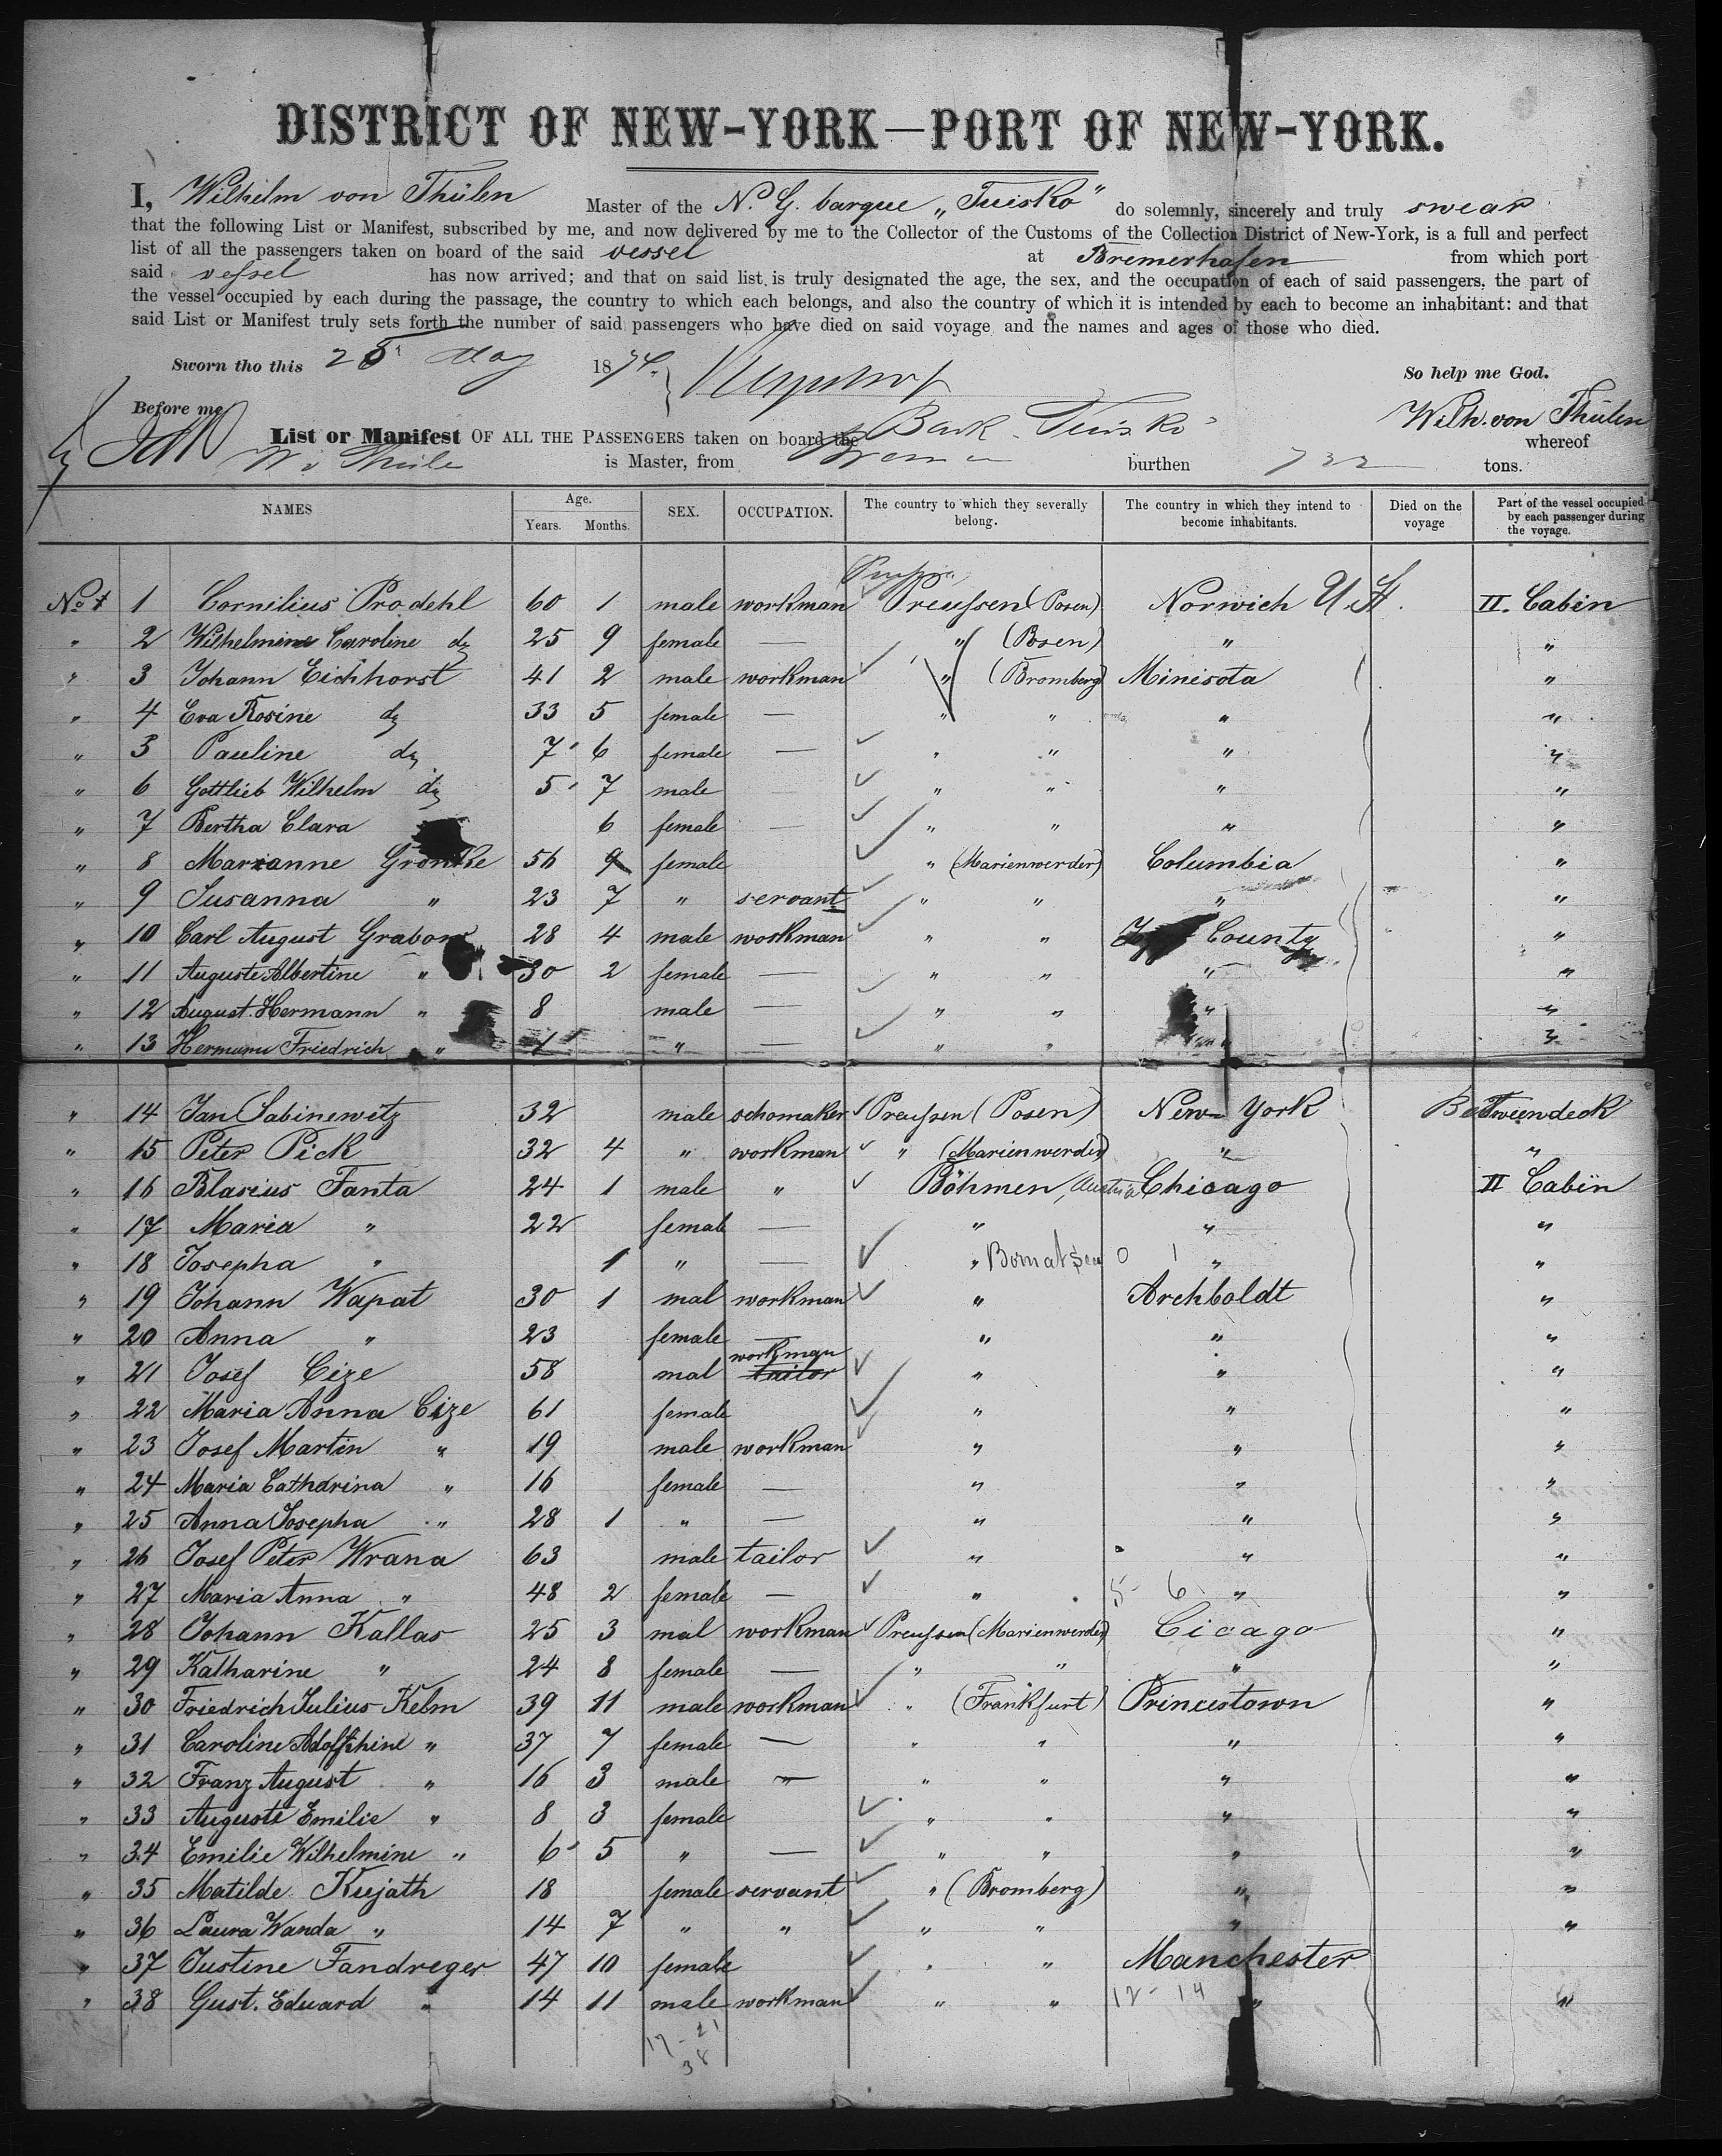 DISTRICT OF NEW-YORK—PORT OF NEW-YORK.
I, Wilhelm von Thülen Master of the N. G. barque „Tuisko" do solemnly, sincerely and truly swear
that the following List or Manifest, subscribed by me, and now delivered by me to the Collector of the Customs of the Collection District of New-York, is a full and perfect
list of all the passengers taken on board of the said vessel at Bremerhafen from which port
said vessel has now arrived; and that on said list is truly designated the age, the sex, and the occupation of each of said passengers, the part of
the vessel occupied by each during the passage, the country to which each belongs, and also the country of which it is intended by each to become an inhabitant: and that
said List or Manifest truly sets forth the number of said passengers who have died on said voyage and the names and ages of those who died.
Sworn tho this 25 May 1874. So help me God.
Before me Wilh. von Thülen
List or Manifest OF ALL THE PASSENGERS taken on board the Bark Tuisko whereof
W v Thüle is Master, from Bremen burthen 722 tons.
NAMES Age. Years. Months. SEX. OCCUPATION. The country to which they severally belong. The country in which they intend to become inhabitants. Died on the voyage Part of the vessel occupied by each passenger during the voyage.
No 1 Cornilius Prodehl 60 1 male workman Preussen (Posen) Norwich U.St. II. Cabin
" 2 Wilhelmine Caroline do 25 9 female — " (Posen) " "
" 3 Johann Eichhorst 41 2 male workman " (Bromberg) Minisota "
" 4 Eva Rosine do 33 5 female — " " " "
" 5 Pauline do 7 6 female — " " " "
" 6 Gottlieb Wilhelm do 5 7 male " " " "
" 7 Bertha Clara 6 female — " " " "
" 8 Marianne Gronke 56 9 female " (Marienwerder) Columbia "
" 9 Susanna " 23 7 " servant " " " "
" 10 Carl August Grabow 28 4 male workman " " County "
" 11 Auguste Albertine " 30 2 female — " " " "
" 12 August Hermann " 8 male — " " " "
" 13 Hermann Friedrich " 1 " — " " " "
" 14 Jan Sabinewitz 32 male schomaker Preussen (Posen) New York Betweendeck
" 15 Peter Pick 32 4 " workman " (Marienwerder) " "
" 16 Blasius Fanta 24 1 male " Böhmen, Austria Chicago II Cabin
" 17 Maria " 22 femal — " " "
" 18 Josepha " 1 " — " 0 1 " "
" 19 Johann Wapat 30 1 mal workman " Archboldt "
" 20 Anna " 23 female — " " "
" 21 Josef Cize 58 mal tailor workman " " "
" 22 Maria Anna Cize 61 female " " "
" 23 Josef Martin " 19 male workman " " "
" 24 Maria Catharina " 16 female — " " "
" 25 Anna Josepha " 28 1 " — " " "
" 26 Josef Peter Wrana 63 male tailor " " "
" 27 Maria Anna " 48 2 female — " 5- 6 " "
" 28 Johann Kallas 25 3 mal workman Preussen (Marienwerder) Cicago "
" 29 Katharine " 24 8 female — " " " "
" 30 Friedrich Julius Kelm 39 11 male workman " (Frankfurt) Princestown "
" 31 Caroline Adolfhine " 37 7 female — " " " "
" 32 Franz August " 16 3 male — " " " "
" 33 Auguste Emilie " 8 3 female " " " "
" 34 Emilie Wilhelmine " 6 5 " — " " " "
" 35 Matilde Kujath 18 female servant " (Bromberg) " "
" 36 Laura Wanda " 14 7 " " " " " "
" 37 Justine Fandreger 47 10 female " " Manchester
" 38 Gust. Eduard " 14 11 male workman " " 12- 14 " "
17 - 21
38